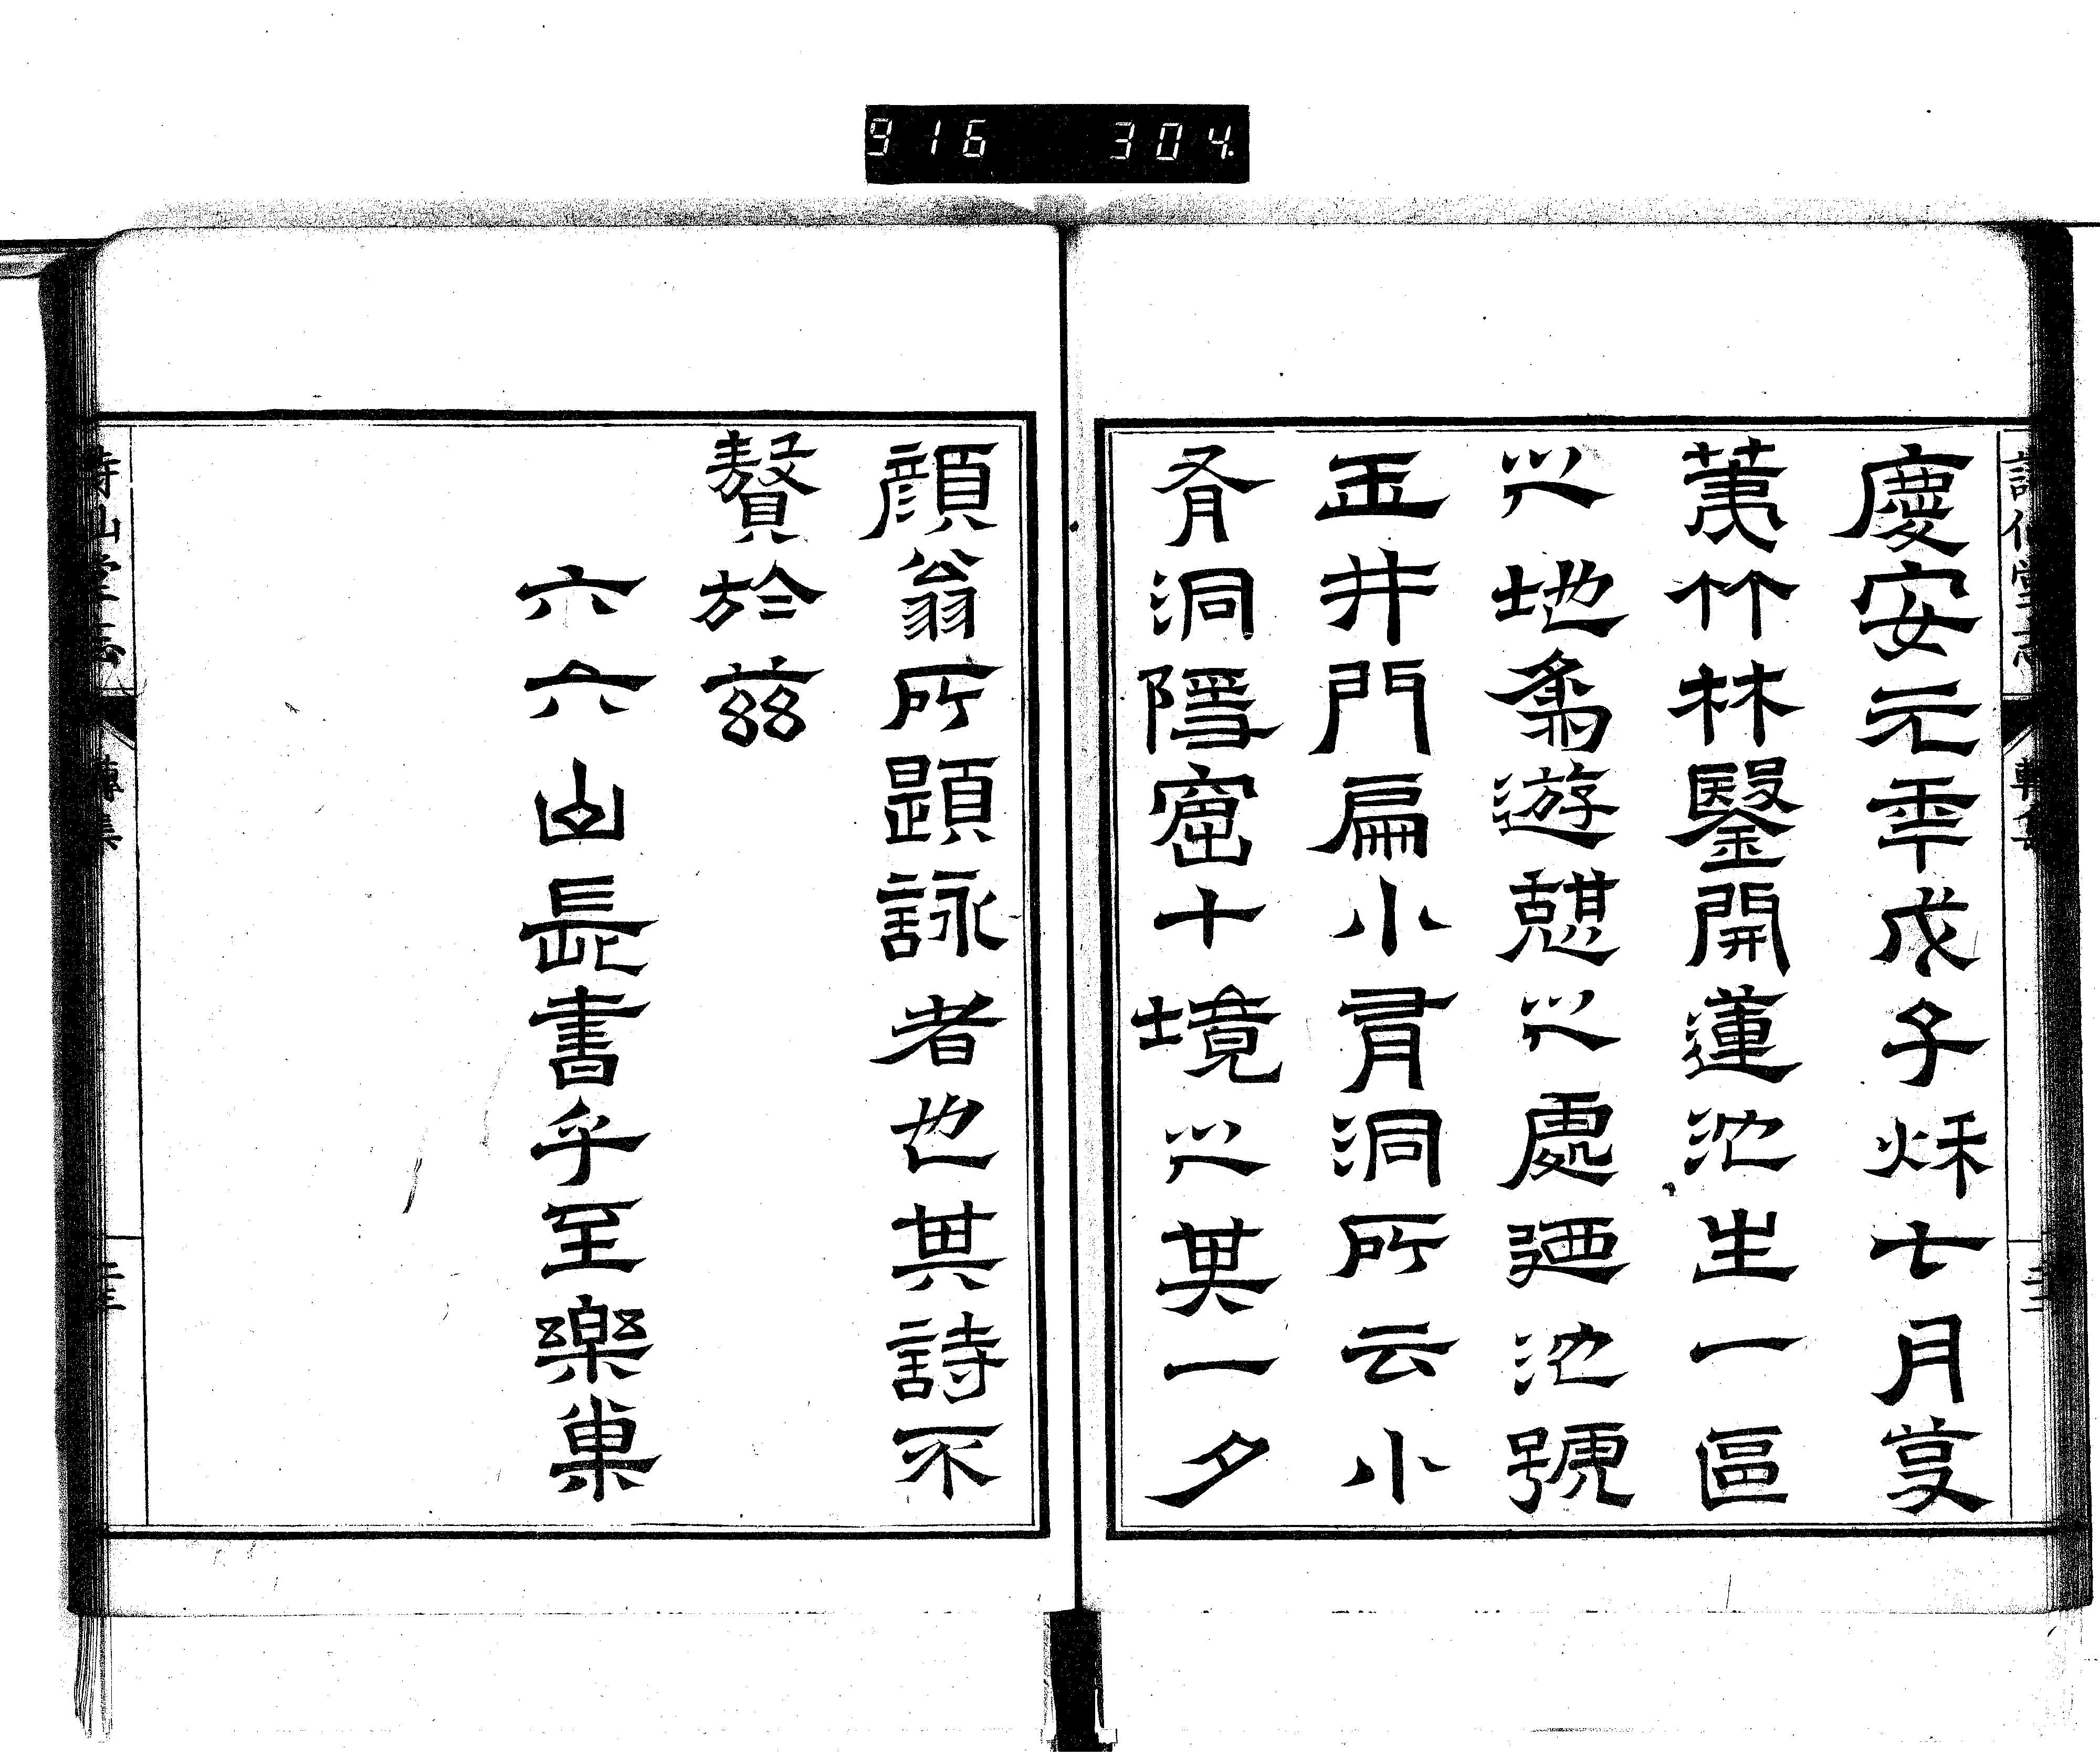 916 304.
詩仙堂志 轉集
慶安元年戊子秋七月芟
荑竹林鑿開蓮池生一區
之地爲遊憩之處廼池號
玉井門扁小有洞所云小
有洞隱窟十境之其一夕
顏翁所題詠者也其詩不
贅於茲
六六山長書乎至樂巢
詩仙堂志 轉集